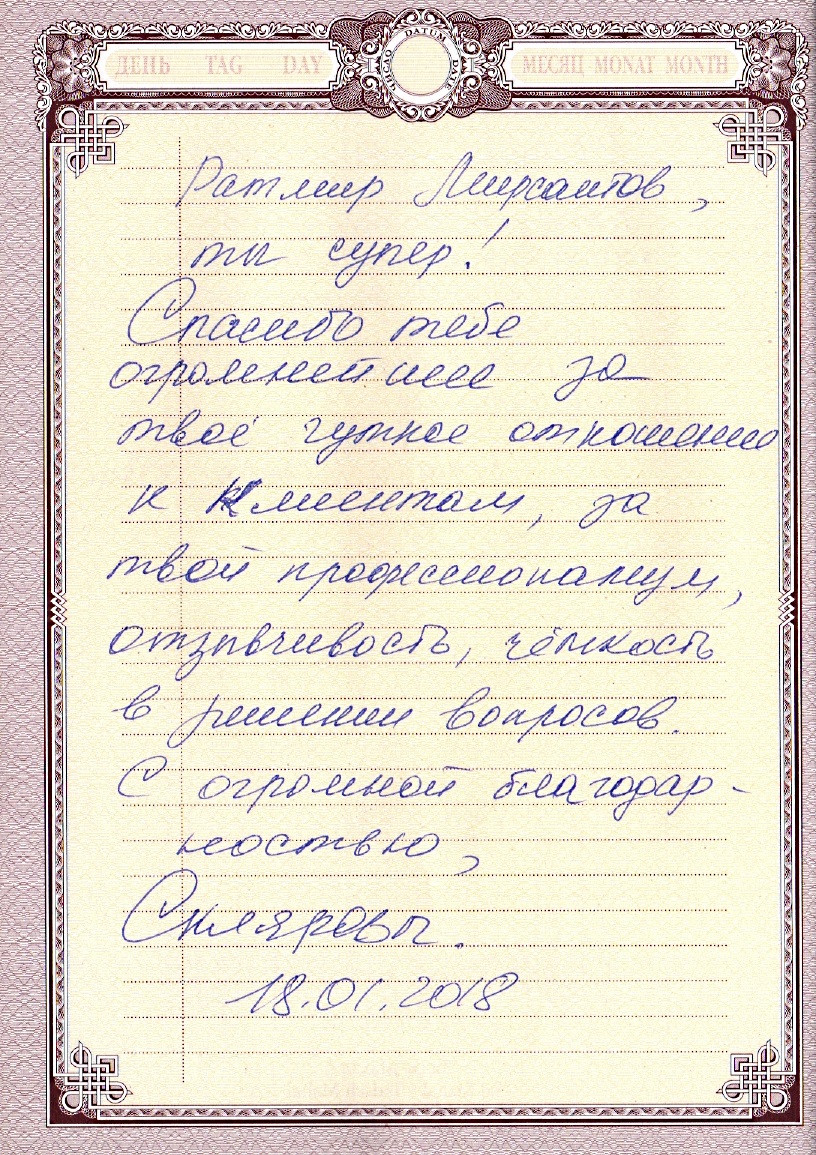 ДЕНЬ TAG DAY ЧИСЛО DATUM DATE МЕСЯЦ MONAT MONTH
Ратмир Мирсаитов,
ты супер!
Спасибо тебе
огромнейшее за
твоё чуткое отношение
к клиентам, за
твой профессионализм,
отзывчивость, чёткость
в решении вопросов.
С огромной благодар-
ностью,
Скляровы.
18.01.2018